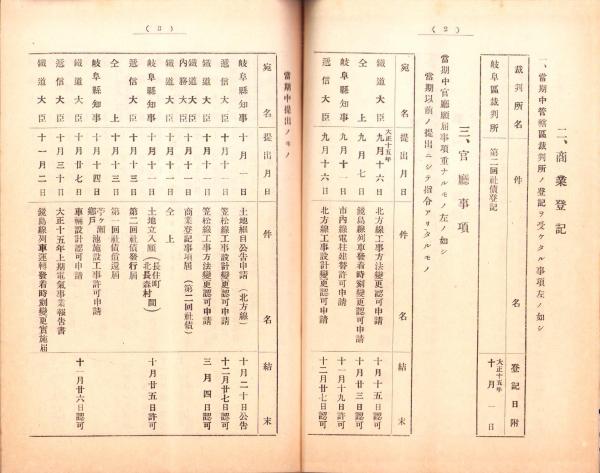 (2)
二、商業登記
一、當期中管轄區裁判所ノ登記ヲ受ケタル事項左ノ如シ
裁判所名 件名 登記日附
岐阜區裁判所 第二回社債登記 大正十五年十月一日
三、官廳事項
當期中官廳願屆事項重ナルモノ左ノ如シ
當期以前ノ提出ニシテ指令アリタルモノ
宛名 提出月日 件名 結末
鐵道大臣 大正十五年九月十六日 北方線工事方法變更認可申請 十月十五日認可
仝上 九月七日 鏡島線列車發着時刻變更認可申請 十月廿三日認可
岐阜縣知事 九月十一日 市內線電柱建替許可申請 十一月十九日許可
鐵道大臣 九月十六日 北方線工事設計變更認可申請 十二月廿七日認可
(3)
當期中提出ノモノ
宛名 提出月日 件名 結末
岐阜縣知事 十月一日 土地細目公告申請(北方線) 十月二十日公告
遞信大臣 鐵道大臣 十月十一日 笠松線工事設計變更認可申請 十二月廿七日認可
鐵道大臣 十月十一日 笠松線工事方法變更認可申請 三月四日認可
鐵道大臣 內務大臣 十月十一日 商業登記事項屆(第二回社債)
鐵道大臣 十月十一日 仝上
岐阜縣知事 十月十一日 土地立入願(長住町 北長森村間) 十月廿五日許可
遞信大臣 十月十三日 第二回社債發行屆
仝上 十月十三日 第一回社債償還屆
岐阜縣知事 十月十四日 鄉戶 池施設工事許可申請
鐵道大臣 十月廿七日 車輛設計認可申請 十一月廿六日認可
遞信大臣 十月三十日 大正十五年上期電氣事業報告書
鐵道大臣 十一月二日 鏡島線列車運轉發着時刻變更實施屆